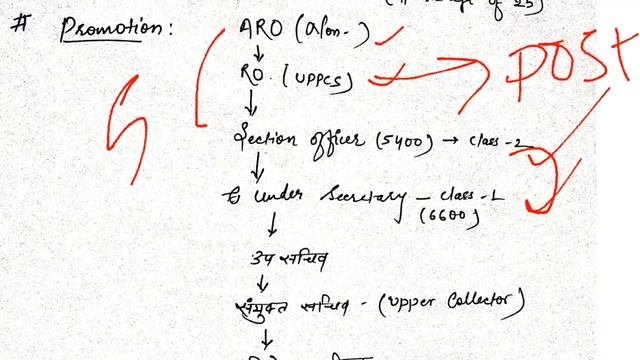 of 25)
# Promotion: ARO (
RO. (UPPCS) POST
Section officer (5400) → class-2
under Secretary - class-1
(6600)
उप सचिव
संयुक्त सचिव - (Upper Collector)